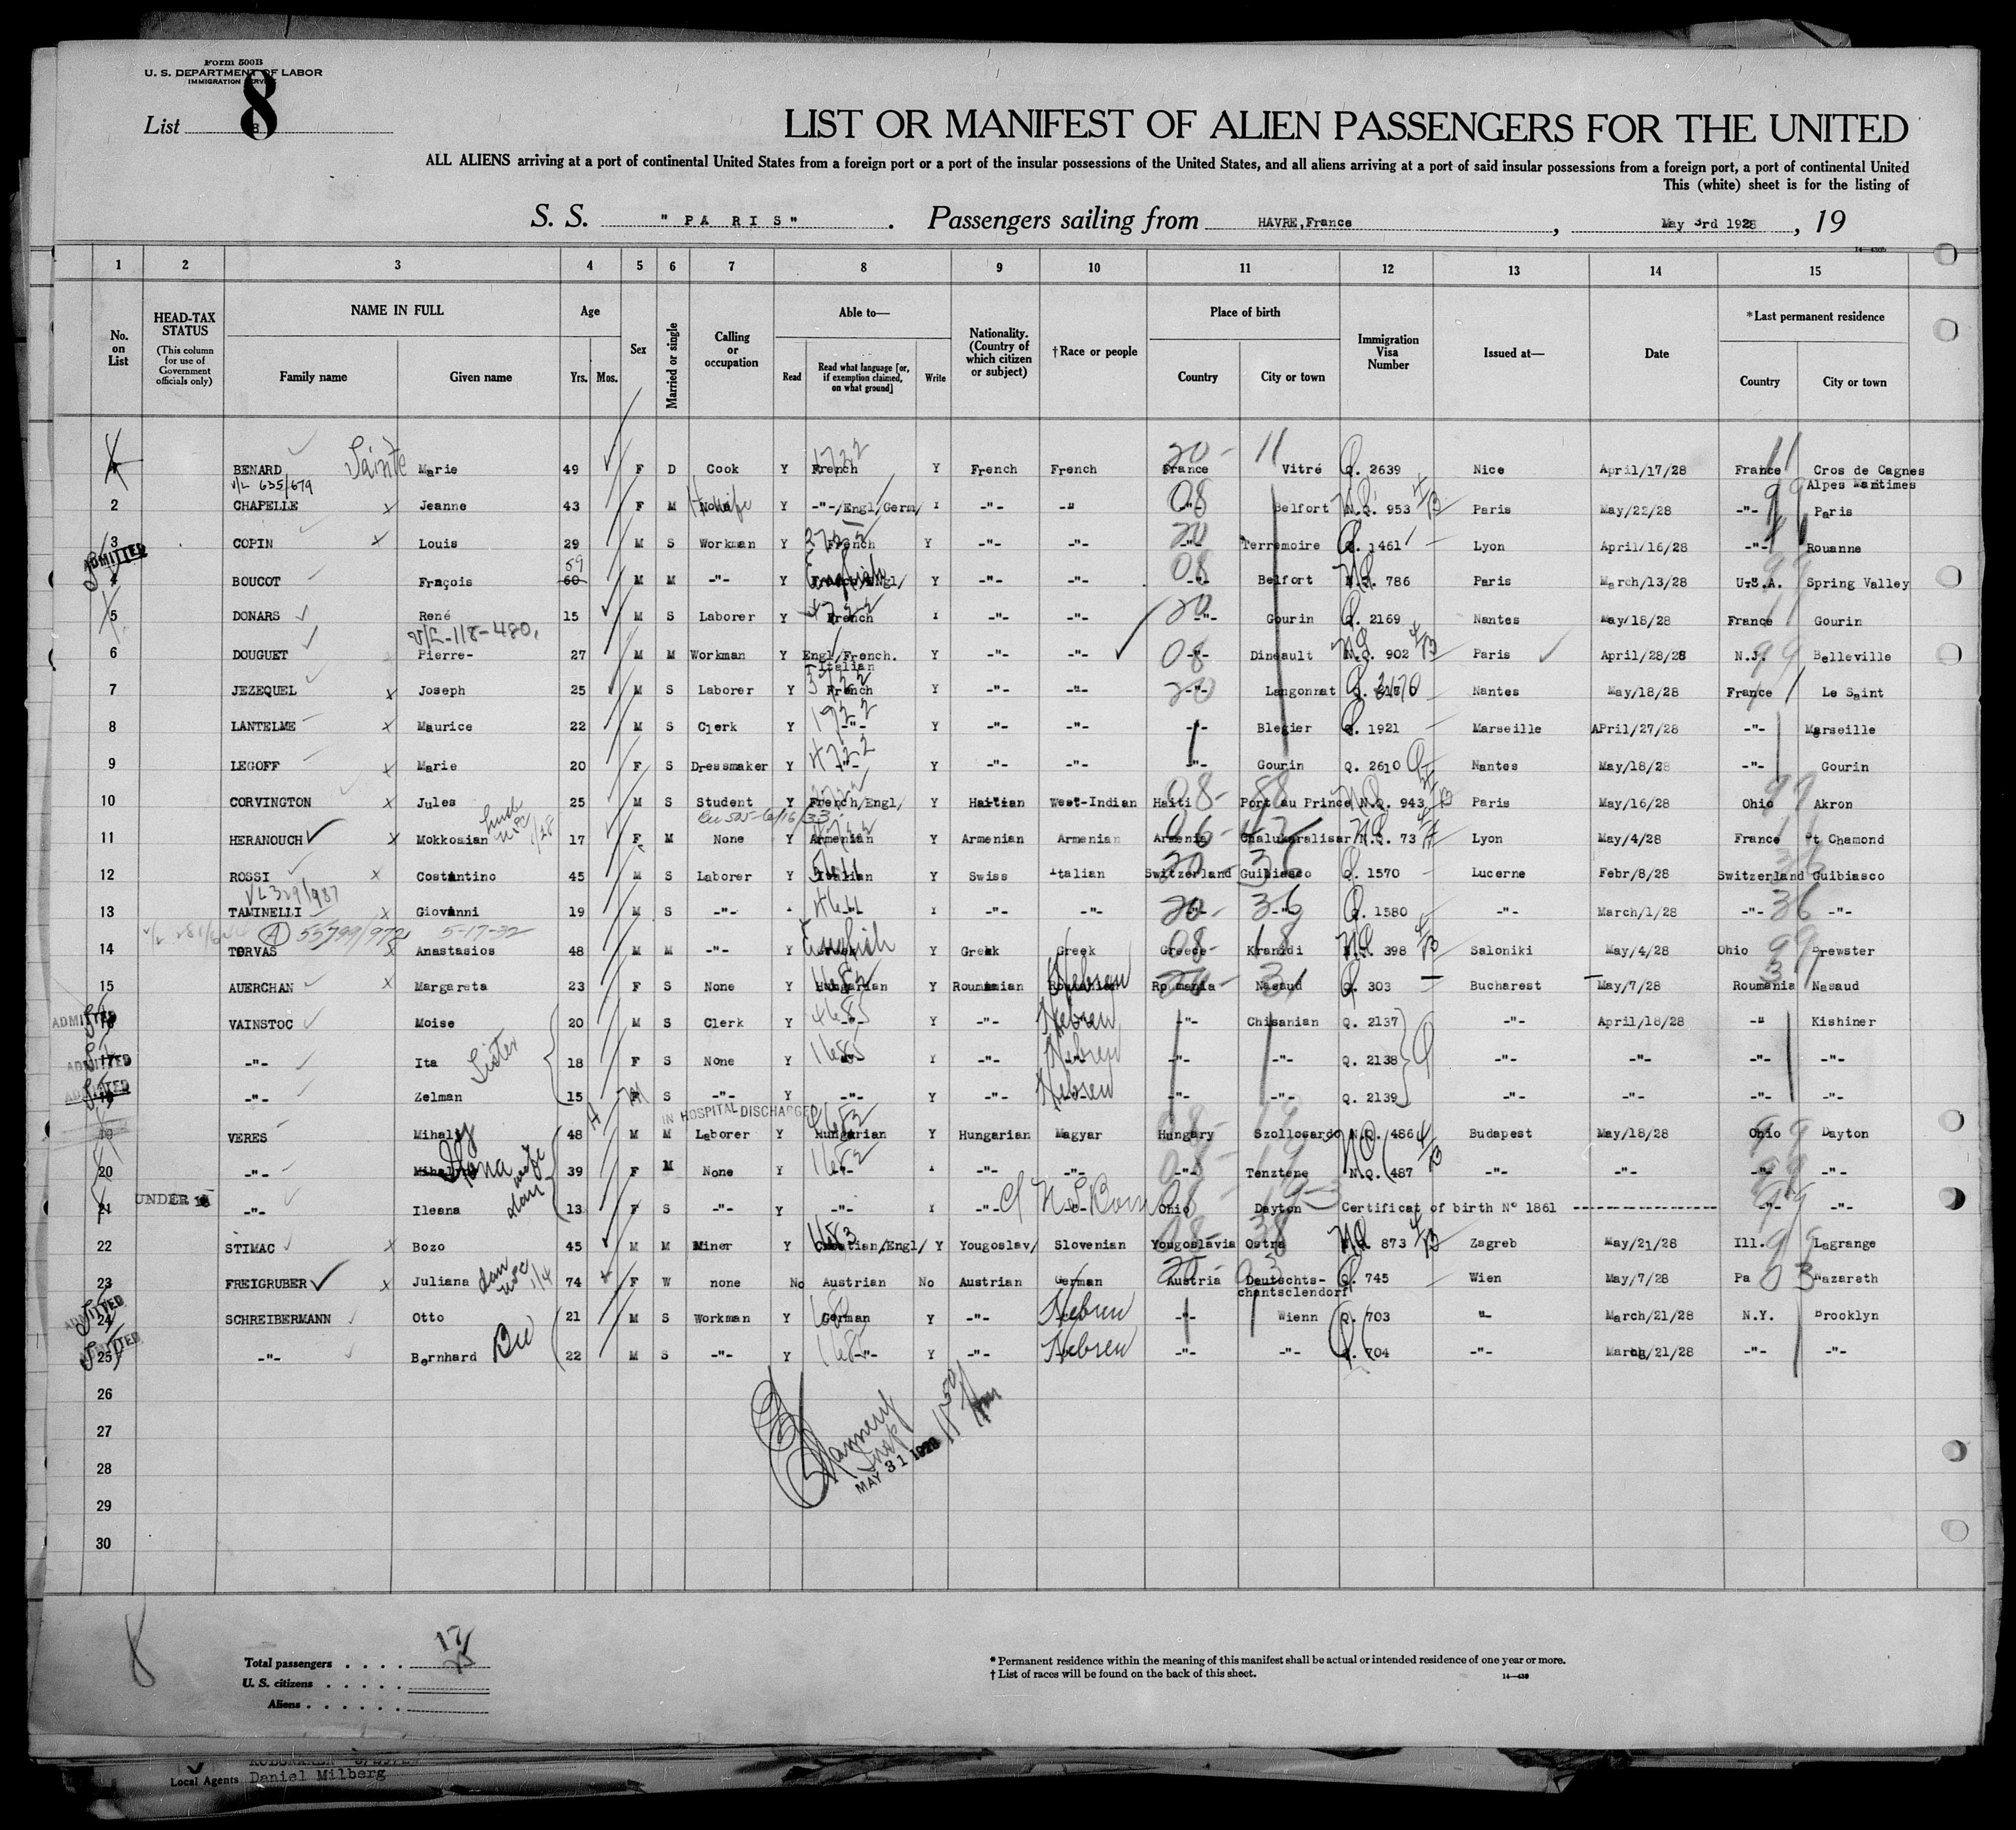 Form 500B
U. S. DEPARTMENT OF LABOR
IMMIGRATION SERVICE
List 8
8
LIST OR MANIFEST OF ALIEN PASSENGERS FOR THE UNITED
ALL ALIENS arriving at a port of continental United States from a foreign port or a port of the insular possessions of the United States, and all aliens arriving at a port of said insular possessions from a foreign port, a port of continental United
This (white) sheet is for the listing of
S. S. "PARIS". Passengers sailing from HAVRE,France, May 3rd 1928, 19
1 2 3 4 5 6 7 8 9 10 11 12 13 14 15
No. on List
HEAD-TAX STATUS
(This column for use of Government officials only)
NAME IN FULL
Family name Given name
Age
Yrs. Mos.
Sex
Married or single
Calling or occupation
Able to—
Read Read what language [or, if exemption claimed, on what ground] Write
Nationality. (Country of which citizen or subject)
†Race or people
Place of birth
Country City or town
Immigration Visa Number
Issued at—
Date
*Last permanent residence
Country City or town
BENARD Sainte Marie 49 F D Cook Y French Y French French France Vitré Q. 2639 Nice April/17/28 France Cros de Cagnes
V/L 635/679 Alpes Maritimes
2 CHAPELLE x Jeanne 43 F M Y -"-/Engl/Germ/ -"- -"- -"- Belfort N.Q. 953 Paris May/22/28 -"- Paris
3 COPIN x Louis 29 M S Workman Y French Y -"- -"- -"- Terremoire Q. 1461 Lyon April/16/28 -"- Rouanne
ADMITTED 59
4 BOUCOT Fraçois 60 M M -"- Y English Y -"- -"- -"- Belfort N.Q. 786 Paris March/13/28 U.S.A. Spring Valley
5 DONARS René 15 M S Laborer Y French -"- -"- -"- Gourin Q. 2169 Nantes May/18/28 France Gourin
V/L-118-480.
6 DOUGUET Pierre- 27 M M Workman Y Engl/French. Y -"- -"- -"- Dineault N.Q. 902 Paris April/28/28 N.J. Belleville
Italian
7 JEZEQUEL x Joseph 25 M S Laborer Y French Y -"- -"- -"- Langonnat Q. 2170 Nantes May/18/28 France Le Saint
8 LANTELME x Maurice 22 M S Clerk Y -"- Y -"- -"- -"- Blegier Q. 1921 Marseille APril/27/28 -"- Marseille
9 LEGOFF x Marie 20 F S Dressmaker Y -"- Y -"- -"- -"- Gourin Q. 2610 Nantes May/18/28 -"- Gourin
10 CORVINGTON x Jules 25 M S Student Y French/Engl/ Y Haitian West-Indian Haiti Port au Prince N.Q. 943 Paris May/16/28 Ohio Akron
11 HERANOUCH x Mokkosian 17 F M None Y Armenian Y Armenian Armenian Armenia Chalukaralisar N.Q. 73 Lyon May/4/28 France St Chamond
12 ROSSI x Costantino 45 M S Laborer Y Italian Y Swiss Italian Switzerland Guibiasco Q. 1570 Lucerne Febr/8/28 Switzerland Guibiasco
VL 329/987
13 TAMINELLI x Giovanni 19 M S -"- -"- -"- -"- -"- -"- Q. 1580 -"- March/1/28 -"- -"-
A 55799/972 5-17-32
14 TORVAS x Anastasios 48 M M -"- Y English Y Greek Greek Greece Kranidi N.Q. 398 Saloniki May/4/28 Ohio Brewster
15 AUERCHAN x Margareta 23 F S None Y Hungarian Y Roumanian Hebrew Roumania Nasaud Q. 303 Bucharest May/7/28 Roumania Nasaud
ADMITTED 16 VAINSTOC Moise 20 M S Clerk Y -"- Y -"- Hebrew -"- Chisanian Q. 2137 -"- April/18/28 -"- Kishiner
ADMITTED 17 -"- Ita Sister 18 F S None Y -"- Y -"- Hebrew -"- -"- Q. 2138 -"- -"- -"- -"-
ADMITTED 18 -"- Zelman 15 M S -"- Y -"- Y -"- Hebrew -"- -"- Q. 2139 -"- -"- -"- -"-
IN HOSPITAL DISCHARGED
19 VERES Mihaly 48 M M Laborer Y Hungarian Y Hungarian Magyar Hungary Szollosardo N.Q. 486 Budapest May/18/28 Ohio Dayton
20 -"- Ilona wife 39 F M None Y -"- -"- -"- -"- Tenztene N.Q. 487 -"- -"- -"- -"-
UNDER 16
21 -"- Ileana dau 13 F S -"- Y -"- -"- Ohio Dayton Certificat of birth N° 1861 -"- -"-
22 STIMAC x Bozo 45 M M Miner Y Croatian/Engl/ Y Yougoslav/ Slovenian Yougoslavia Ostra N.Q. 873 Zagreb May/21/28 Ill. Lagrange
23 FREIGRUBER x Juliana 74 F W none No Austrian No Austrian German Austria Deutschts- Q. 745 Wien May/7/28 Pa Nazareth
chantsclendorf
ADMITTED 24 SCHREIBERMANN Otto 21 M S Workman Y German Y -"- Hebrew -"- Wienn Q. 703 -"- March/21/28 N.Y. Brooklyn
ADMITTED 25 -"- Bernhard Bro 22 M S -"- Y -"- Y -"- Hebrew -"- -"- Q. 704 -"- March/21/28 -"- -"-
26
27
28
29
30
Insp
MAY 31 1928
8
Total passengers 17
25
U. S. citizens
Aliens
* Permanent residence within the meaning of this manifest shall be actual or intended residence of one year or more.
† List of races will be found on the back of this sheet.
14—430
Local Agents Daniel Milberg